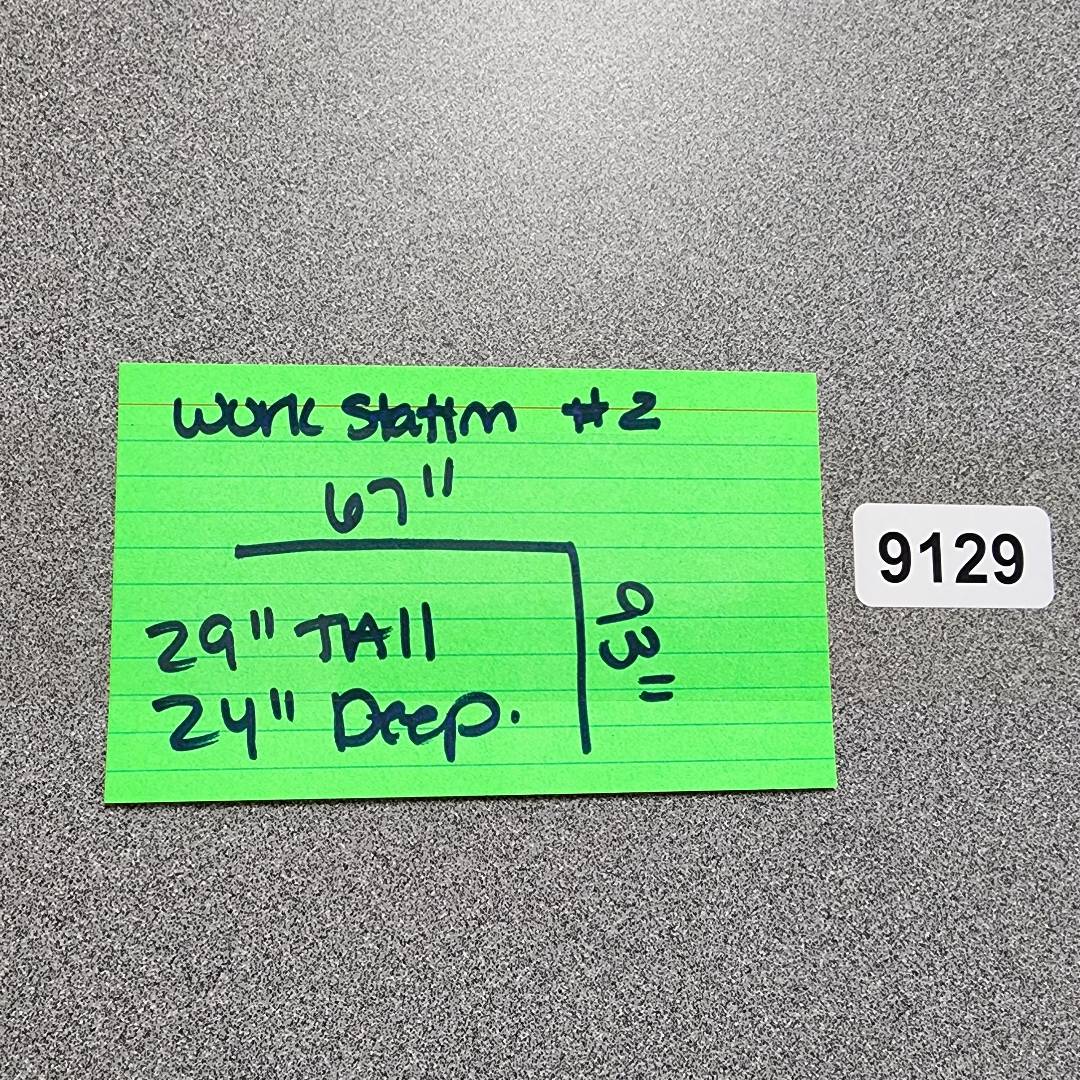 Work Station #2
67"
93"
29" TAll
24" Deep.
9129